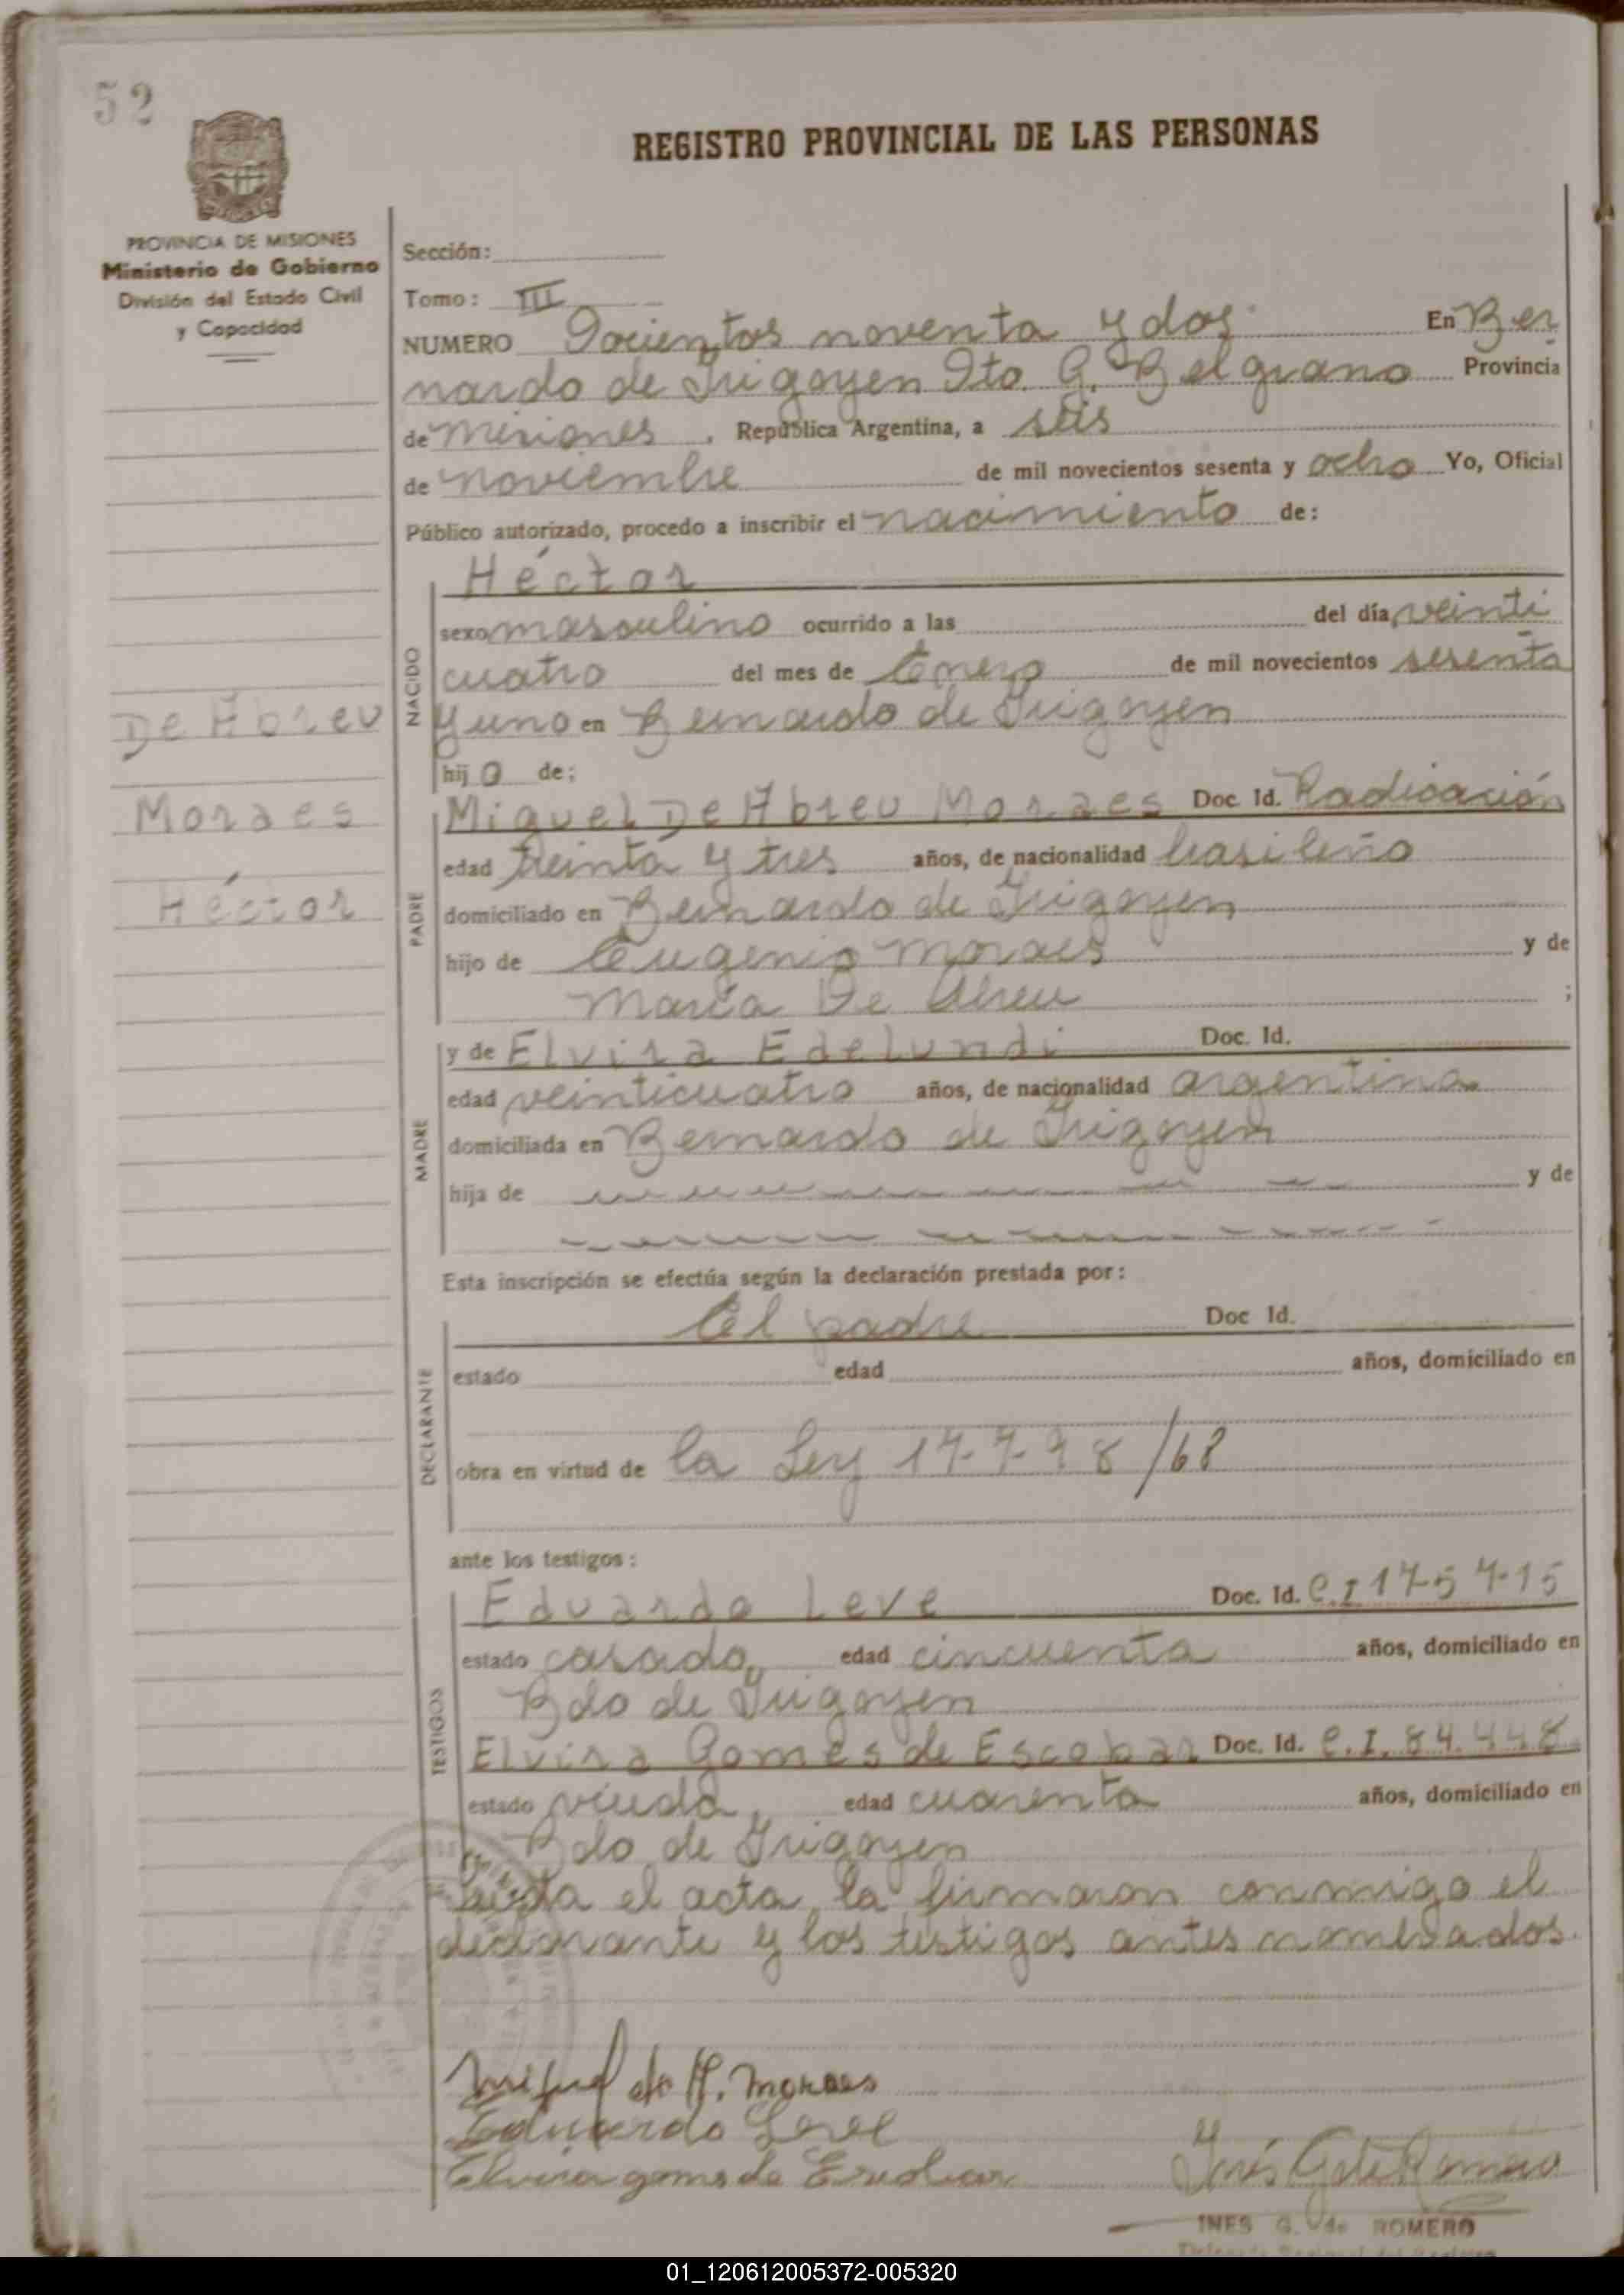 52
REGISTRO PROVINCIAL DE LAS PERSONAS
PROVINCIA DE MISIONES
Ministerio de Gobierno
División del Estado Civil
y Capacidad
Sección:
Tomo: III
NUMERO Docientos noventa y dos En Ber
nardo de Irigoyen Dto. G. Belgrano Provincia
de Misiones, República Argentina, a seis
de noviembre de mil novecientos sesenta y ocho Yo, Oficial
Público autorizado, procedo a inscribir el nacimiento de:
NACIDO
Héctor
sexo masculino ocurrido a las del día veinti
cuatro del mes de Enero de mil novecientos sesenta
y uno en Bernardo de Irigoyen
hij o de:
De Abreu
Moraes
Héctor
PADRE
Miguel De Abreu Moraes Doc. Id. Radicación
edad treinta y tres años, de nacionalidad brasileño
domiciliado en Bernardo de Irigoyen
hijo de Eugenio Moraes y de
María De Abreu ;
MADRE
y de Elvira Edelundi Doc. Id.
edad veinticuatro años, de nacionalidad argentina
domiciliada en Bernardo de Irigoyen
hija de y de
Esta inscripción se efectúa según la declaración prestada por:
DECLARANTE
El padre Doc Id.
estado edad años, domiciliado en
obra en virtud de la Ley 17798/68
ante los testigos:
TESTIGOS
Eduardo Leve Doc. Id. C.I 175715
estado casado, edad cincuenta años, domiciliado en
Bdo de Irigoyen
Elvira Gomes de Escobar Doc. Id. C.I. 84.448
estado viuda, edad cuarenta años, domiciliado en
Bdo de Irigoyen
el acta, la firmaron conmigo el
declarante y los testigos antes nombrados.
Miguel de A. Moraes
Eduardo Leve
Elvira gomes de Escobar
Inés G de Romero
INES G. Vde ROMERO
01_120612005372-005320